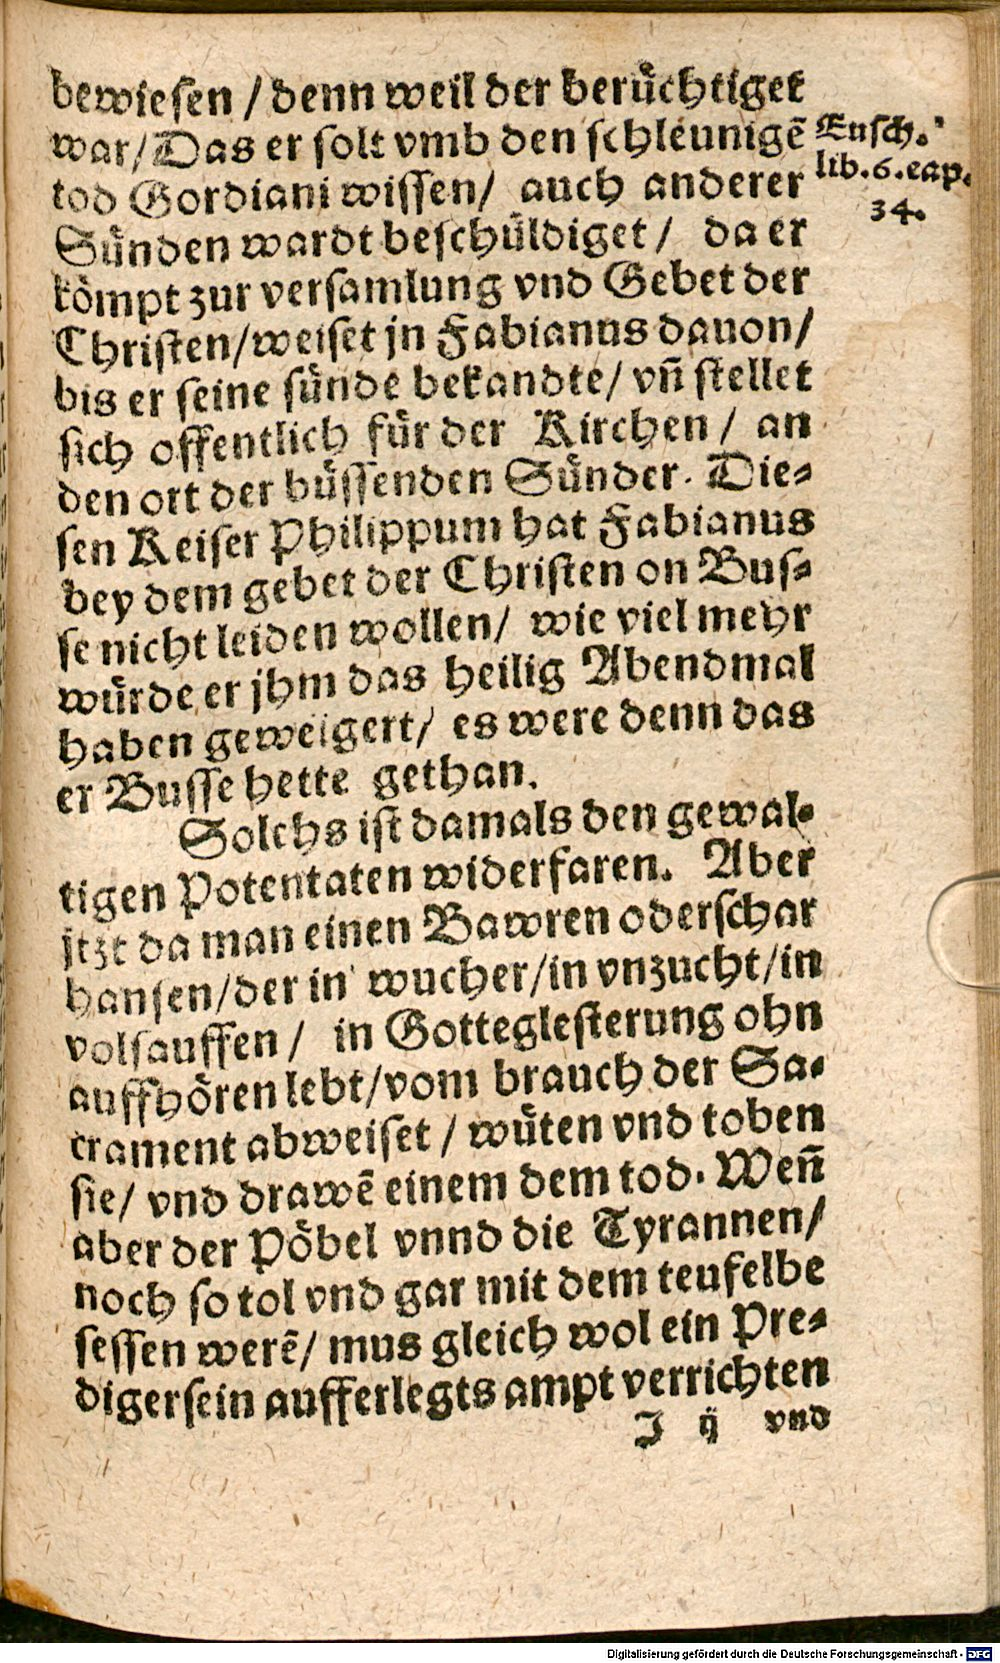 bewiesen / denn weil der berüchtiget
war/ Das er solt vmb den schleunigē
tod Gordiani wissen/ auch anderer
Sünden wardt beschüldiget / da er
kömpt zur versamlung vnd Gebet der
Christen/weiset jn Fabianus dauon/
bis er seine sünde bekandte/ vn̄ stellet
sich offentlich für der Kirchen / an
den ort der büssenden Sünder. Die-
sen Keiser Philippum hat Fabianus
bey dem gebet der Christen on Bus-
se nicht leiden wollen/ wie viel mehr
würde er jhm das heilig Abendmal
haben geweigert/ es were denn das
er Busse hette gethan.
Solchs ist damals den gewal-
tigen Potentaten widerfaren. Aber
jtzt da man einen Bawren oderschar
hansen/der in wucher/in vnzucht/in
volsauffen / in Gotteglesterung ohn
auffhören lebt/vom brauch der Sa-
crament abweiset / wüten vnd toben
sie/ vnd drawē einem dem tod. Wen̄
aber der Pöbel vnnd die Tyrannen/
noch so tol vnd gar mit dem teufelbe
sessen werē/ mus gleich wol ein Pre-
digersein aufferlegts ampt verrichten
J ij vnd
Eusch.
lib.6.cap.
34.
Digitalisierung gefördert durch die Deutsche Forschungsgemeinschaft - DFG